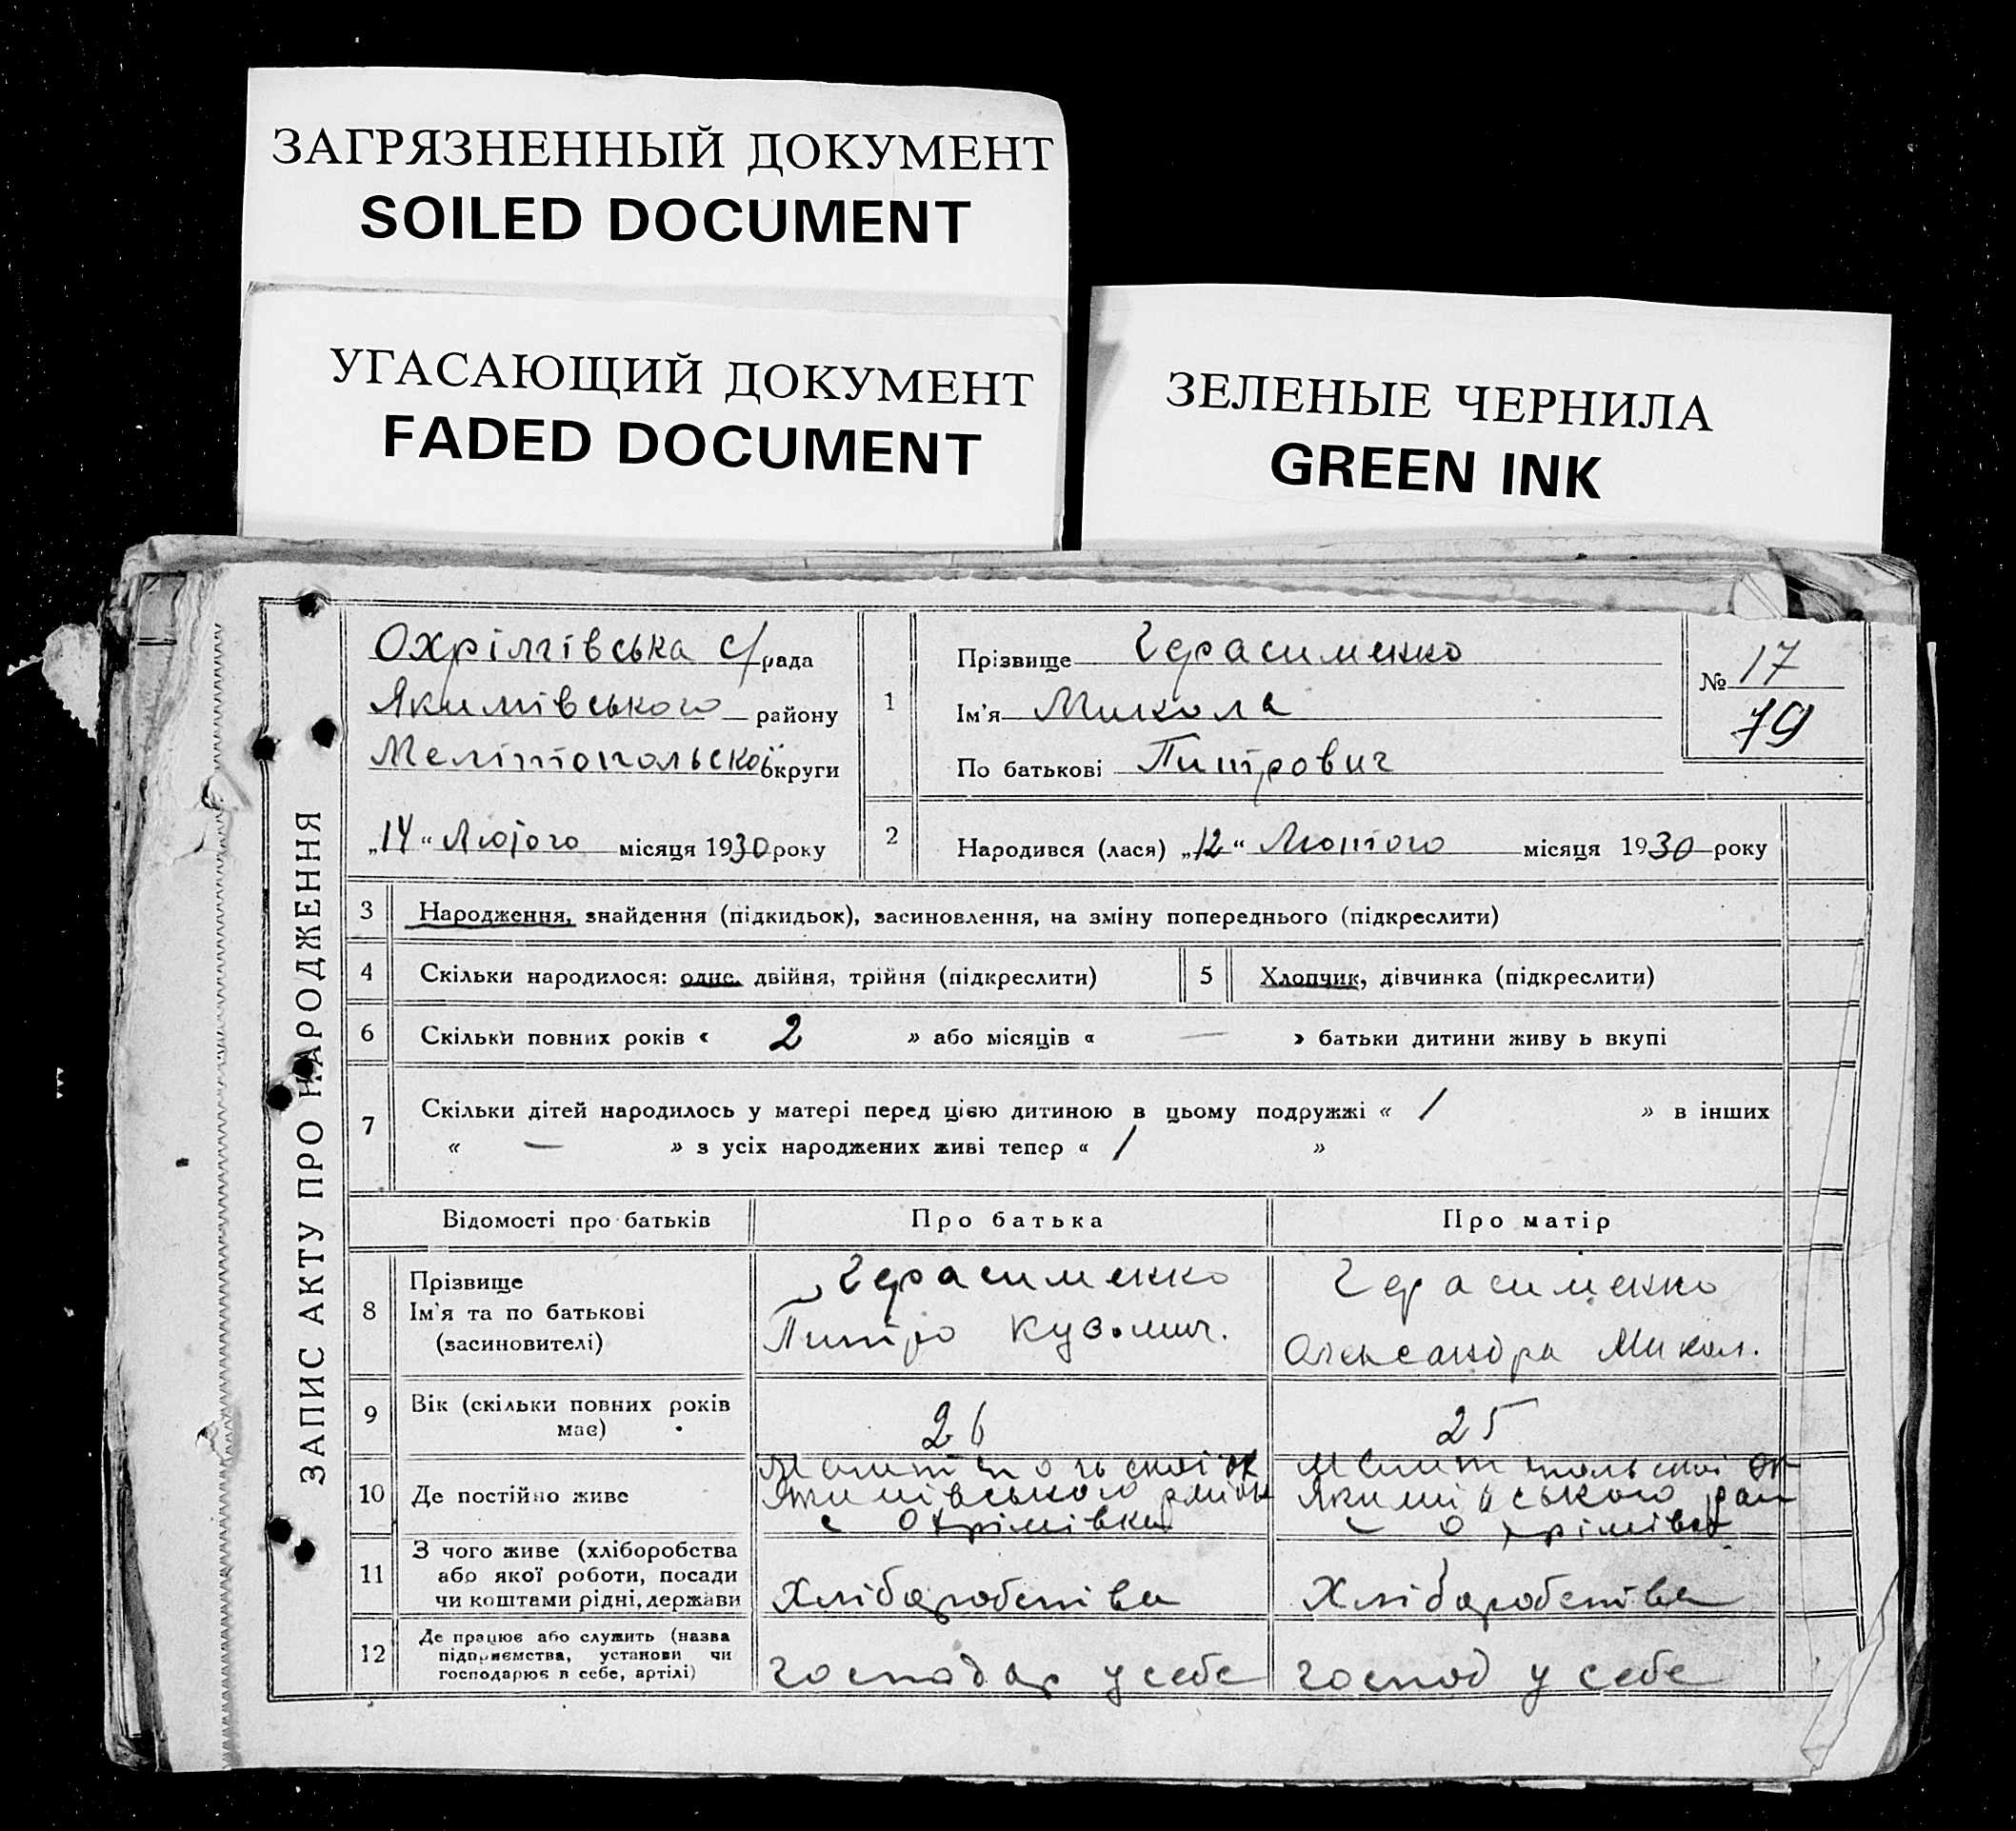 ЗАГРЯЗНЕННЫЙ ДОКУМЕНТ
SOILED DOCUMENT
УГАСАЮЩИЙ ДОКУМЕНТ
FADED DOCUMENT
ЗЕЛЕНЫЕ ЧЕРНИЛА
GREEN INK
ЗАПИС АКТУ ПРО НАРОДЖЕННЯ
Охрімівська с/рада
Якимівського району
Мелітопольскої округи
„14“ Лютого місяця 1930 року
1
Прізвище Герасименко
Ім'я Микола
По батькові Питрович
№ 17
79
2 Народився (лася) „12“ Лютого місяця 1930 року
3 Народження, знайдення (підкидьок), засиновлення, на зміну попереднього (підкреслити)
4 Скільки народилося: одне, двійня, трійня (підкреслити) 5 Хлопчик, дівчинка (підкреслити)
6 Скільки повних років « 2 » або місяців « — » батьки дитини живу ь вкупі
7 Скільки дітей народилось у матері перед цією дитиною в цьому подружжі « 1 » в інших
« — » з усіх народжених живі тепер « 1 »
Відомості про батьків Про батька Про матір
8 Прізвище
Ім'я та по батькові
(засиновителі)
Герасименко
Питро Кузьмич.
Герасименко
Олександра Микол.
9 Вік (скільки повних років
має)
26 25
10 Де постійно живе
Мелитопольскої ок
Якимівського район
с Охрімівка
Мелитопольскої ок
Якимівського рай
с Охрімівка
11 З чого живе (хліборобства
або якої роботи, посади
чи коштами рідні, держави
Хліборобства Хліборобства
12 Де працює або служить (назва
підприємства, установи чи
господарює в себе, артілі)
господар у себе господ у себе